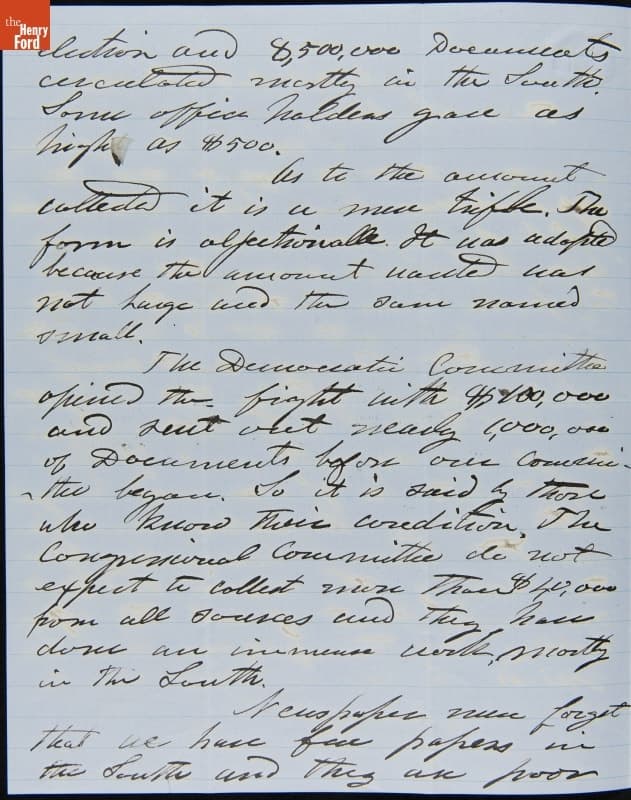 the
Henry
Ford
election and 8,500,000 Documents
circulated mostly in the South.
Some office holders gave as
high as $500.
As to the amount
collected it is a mere trifle. The
form is objectionable. It was adopted
because the amount wanted was
not large and the sum named
small.
The Democratic Committee
opened the fight with $100,000
and sent out nearly 1,000,000
of Documents before our Commit-
-tee began. So it is said by those
who know their condition. The
Congressional Committee do not
expect to collect more than $40,000
from all sources and they have
done an immense work, mostly
in the South.
Newspaper men forget
that we have few papers in
the South and they are poor